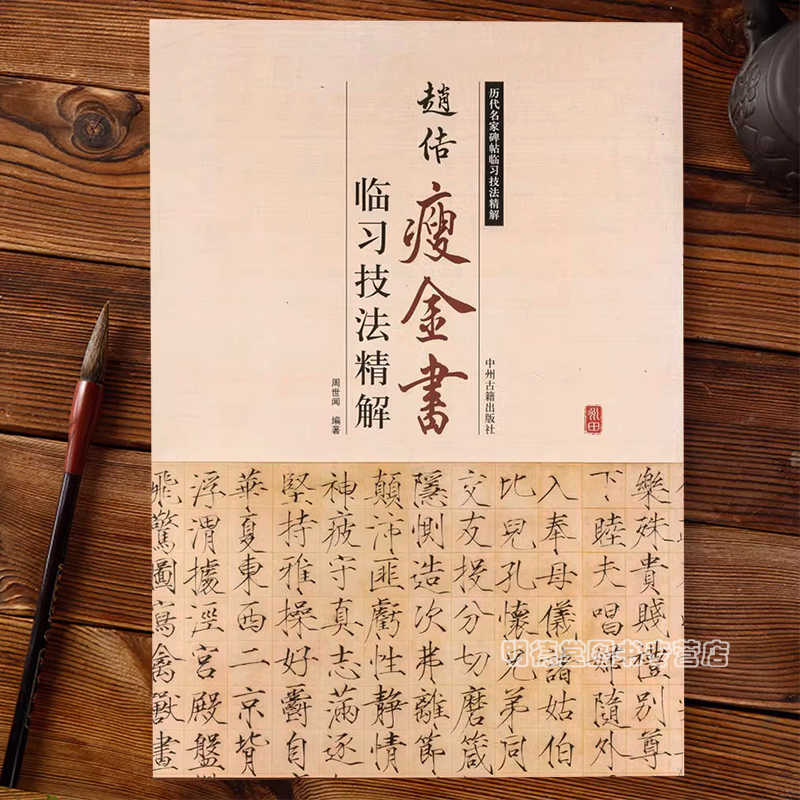 历代名家碑帖临习技法精解
趙佶
瘦金書
临习技法精解
中州古籍出版社
周世闻 编著
樂殊貴賤禮別尊
下睦夫唱婦隨外
入奉母儀諸姑伯
比兒孔懷兄弟同
交友投分切磨箴
隱惻造次弗離節
顛沛匪虧性靜情
神疲守真志滿逐
堅持雅操好爵自
華夏東西二京背
浮渭據涇宮殿盤
飛驚圖寫禽獸畫